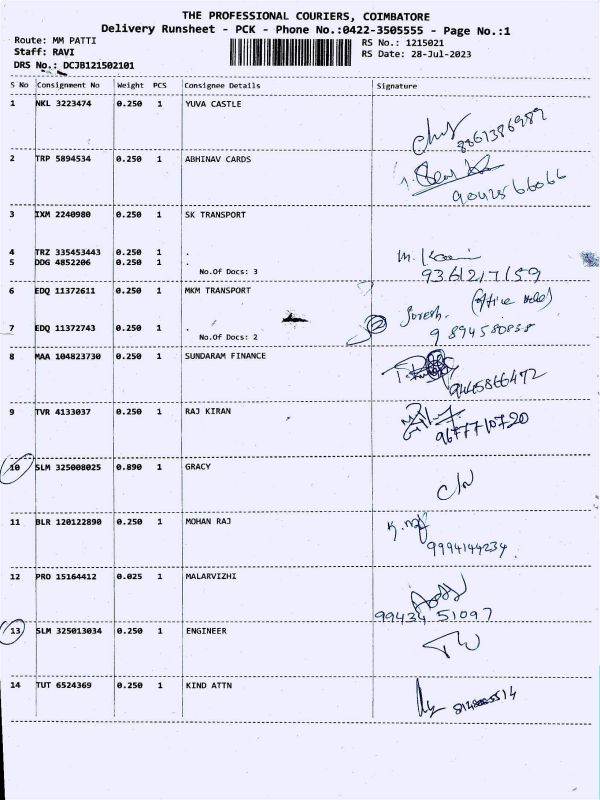 THE PROFESSIONAL COURIERS, COIMBATORE
Delivery Runsheet - PCK - Phone No.:0422-3505555 - Page No.:1
Route: MM PATTI
RS No.: 1215021
Staff: RAVI
RS Date: 28-Jul-2023
DRS No.: DCJB121502101
S No Consignment No Weight PCS Consignee Details Signature
1 NKL 3223474 0.250 1 YUVA CASTLE
2 TRP 5894534 0.250 1 ABHINAV CARDS
9042566066
3 IXM 2240980 0.250 1 SK TRANSPORT
4 TRZ 335453443 0.250 1 .
5 DDG 4852206 0.250 1 .
No.Of Docs: 3
9361217159
6 EDQ 11372611 0.250 1 MKM TRANSPORT
2
7 EDQ 11372743 0.250 1 .
9894580838
No.Of Docs: 2
8 MAA 104823730 0.250 1 SUNDARAM FINANCE
9445866472
9 TVR 4133037 0.250 1 RAJ KIRAN
9677710720
10 SLM 325008025 0.890 1 GRACY
11 BLR 120122890 0.250 1 MOHAN RAJ
9994144234
12 PRO 15164412 0.025 1 MALARVIZHI
99434 51097
13 SLM 325013034 0.250 1 ENGINEER
14 TUT 6524369 0.250 1 KIND ATTN